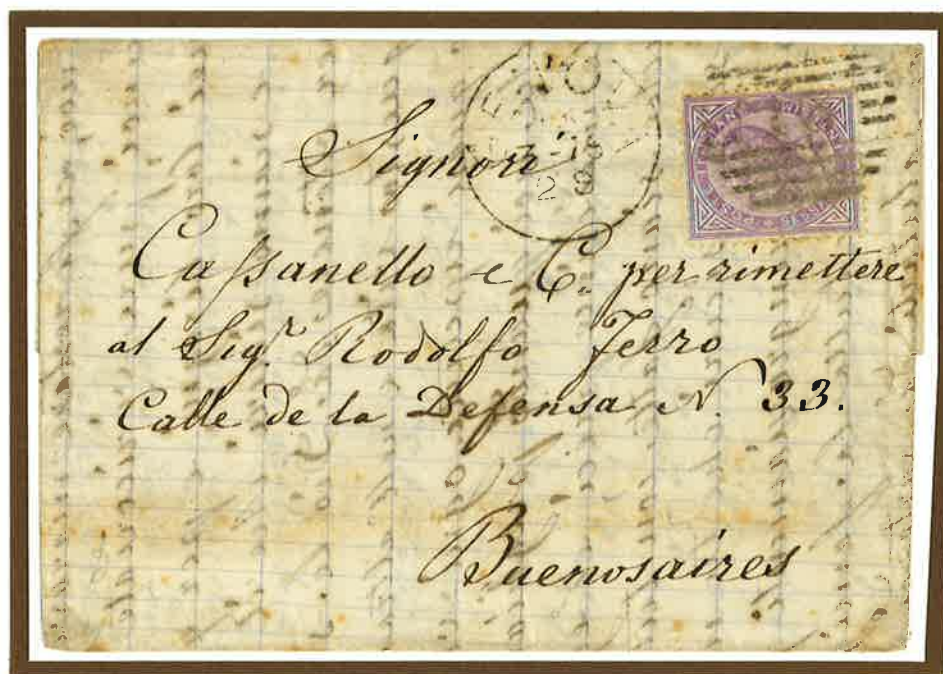 Signori
Cassanello e C. per rimettere
al Sigr. Rodolfo Ferro
Calle de la Defensa N. 33.
Buenosaires